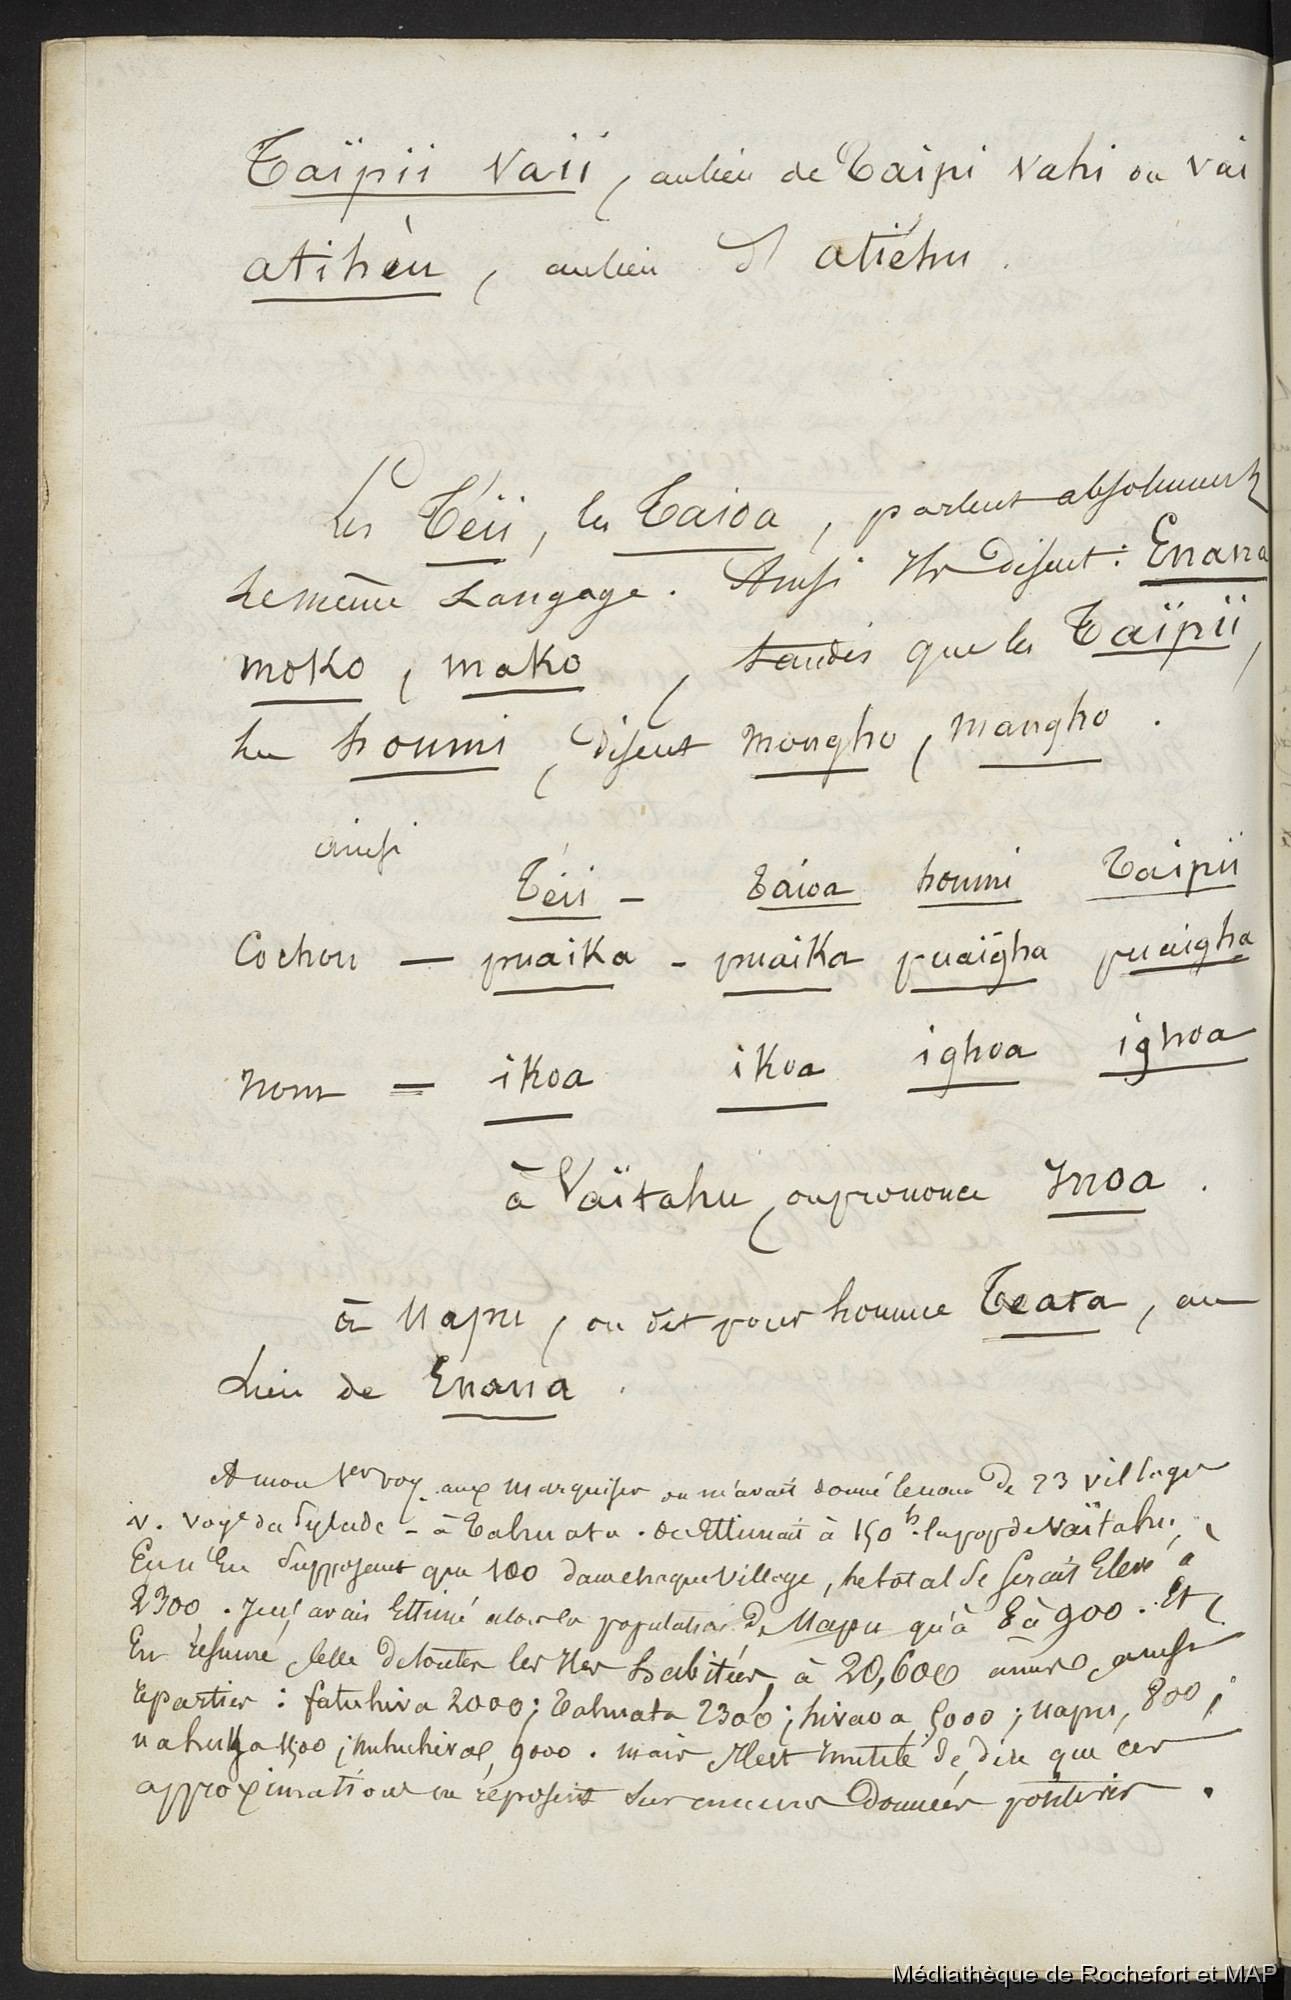 Taïpii vaii, aulieu de Taipi vahi ou vai
atiheu, aulieu d'atiéhu.
Les Téii, les Taioa, parlent absolument
le même langage. Ainsi ils disent: Enana
moko, mako, tandis que les Taïpii,
les houmi, disent mongho, mangho.
ainsi
Téii - taioa houmi Taipii
Cochon — puaika - puaika puaïgha puaigha
nom = ikoa ikoa ighoa ighoa
à Vaïtahu, on prononce Inoa.
à Uapu, on dit pour homme Teata, au
lieu de Enana.
A mon 1er voy. aux marquises on m'avait donné le nom de 23 villages
v. voye du Pylade - à Tahuata. on Estimait à 150 h. la pop de Vaïtahu,
En n'en supposant que 100 dans chaque village, le total se serait Elevé à
2300. J'en avais Estimé alors la population de Uapu qu'à 8 à 900. Et
En résumé, celle de toutes les Iles habitées, à 20,600 ames, ainsi
réparties: fatuhiva 2000; Tahuata 2300; hivaoa, 5000; uapu, 800;
uahuga 1500; nukuhiva, 9000. mais Il est Inutile de dire que ces
approximations ne réposent sur aucunes Données positives.
Médiathèque de Rochefort et MAP